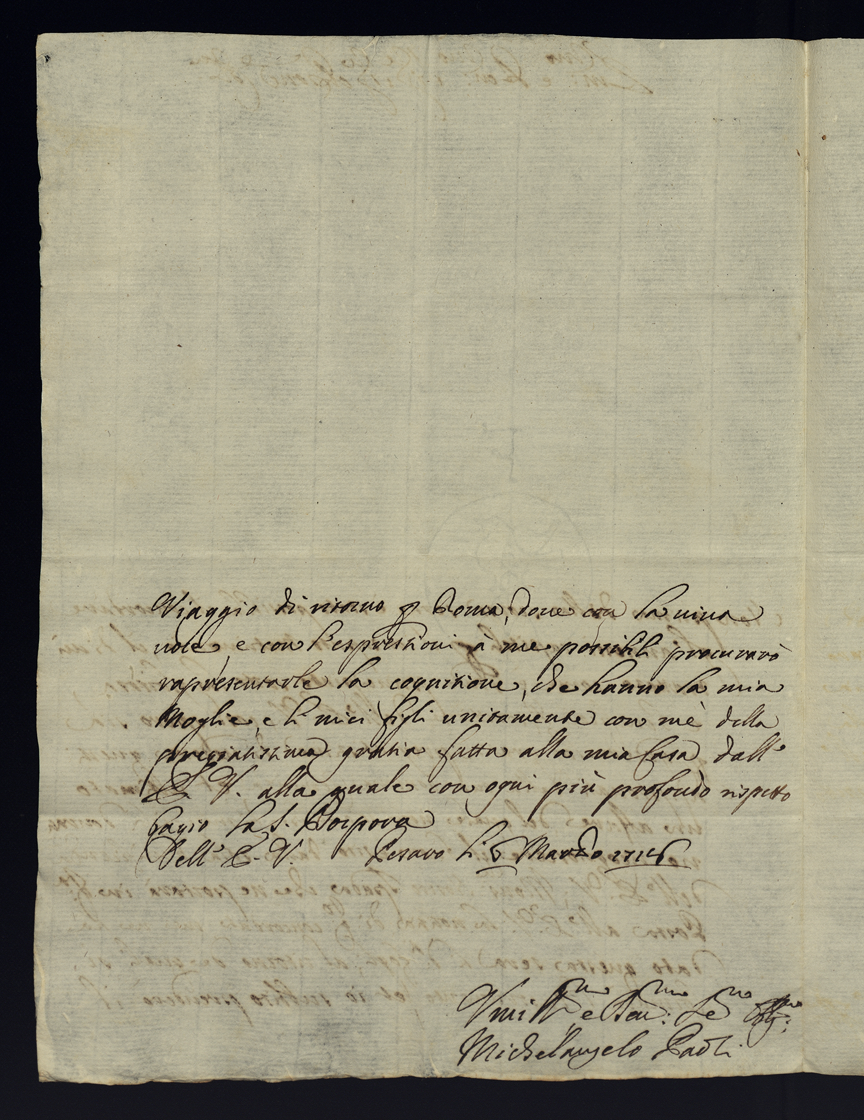 Viaggio di ritorno p Roma, dove con la viva
voce, e con l'espressioni à me possibili procurarò
rapresentarle la cognitione, che hanno la mia
Moglie, e li miei figli unitamente con mè della
pregiatissima gratia fatta alla mia Casa dall'
E. V. alla quale con ogni più profondo rispetto
bacio la S. Porpora
Dell' E. V. Pesaro li 6 Marzo
Vmilmo e Deu: Se
Michelangelo Paoli